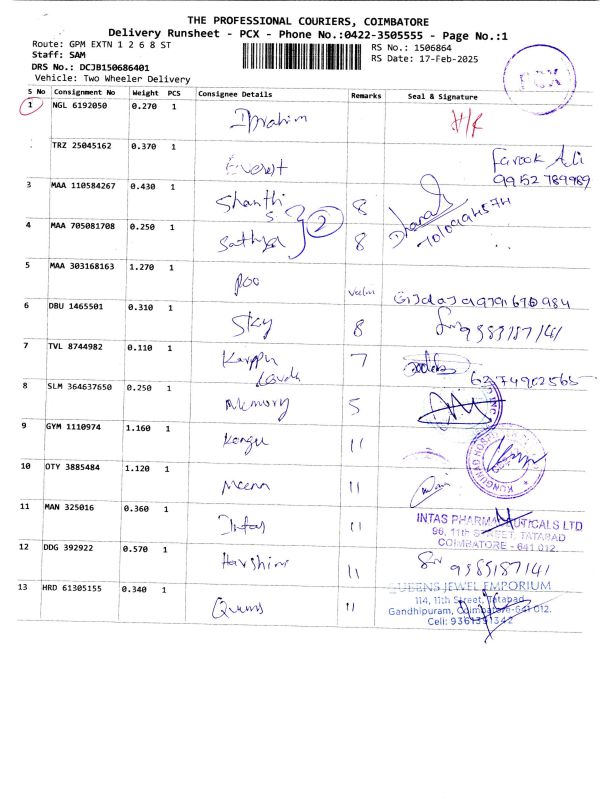 THE PROFESSIONAL COURIERS, COIMBATORE
Delivery Runsheet - PCX - Phone No.:0422-3505555 - Page No.:1
Route: GPM EXTN 1 2 6 8 ST
RS No.: 1506864
Staff: SAM
RS Date: 17-Feb-2025
DRS No.: DCJB150686401
Vehicle: Two Wheeler Delivery
PCX
S No Consignment No Weight PCS Consignee Details Remarks Seal & Signature
1 NGL 6192050 0.270 1 Ibrahim
TRZ 25045162 0.370 1 Everest Farook Ali
9952789989
3 MAA 110584267 0.430 1 Shanthi S 8
2
4 MAA 705081708 0.250 1 Sathya 8
5 MAA 303168163 1.270 1 Poo
6 DBU 1465501 0.310 1 Sky 8 9385187141
7 TVL 8744982 0.110 1 7
6374902565
8 SLM 364637650 0.250 1 Memory 5
9 GYM 1110974 1.160 1 Kongu 11
10 OTY 3885484 1.120 1 Meena 11
11 MAN 325016 0.360 1 Intas 11 INTAS PHARMACEUTICALS LTD
96, 11th STREET, TATABAD
COIMBATORE - 641 012.
12 DDG 392922 0.570 1 Harshini 11 9385187141
13 HRD 61305155 0.340 1 Queens 11 QUEENS JEWEL EMPORIUM
114, 11th Street, Tatabad
Gandhipuram, Coimbatore-641 012.
Cell: 9361391342